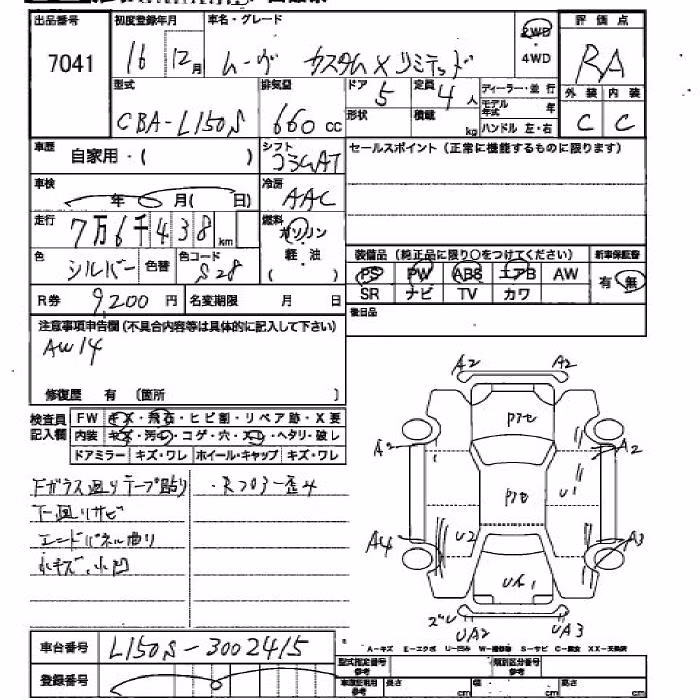 出品番号 初度登録年月 車名・グレード 評価点
7041 16 12月 ムーヴ カスタム X リミテッド 2WD RA
4WD
型式 排気量 ドア 定員 ディーラー・並行 外装 内装
CBA-L150S 660cc 5 4人 モデル年式 年 C C
形状 積載 kg ハンドル 左・右
車歴 自家用・( ) シフト コラムAT セールスポイント(正常に機能するものに限ります)
車検 年 月( 日) 冷房 AAC
走行 7万6千438km 燃料 ガソリン
軽・油
色 シルバー 色替 色コード S28 装備品(純正品に限り○をつけてください) 新車保証書
PS PW ABS エアB AW 有・無
R券 9200円 名変期限 月 日 SR ナビ TV カワ
注意事項申告欄(不具合内容等は具体的に記入して下さい) 後日品
AW14
修復歴 有 〔箇所 〕
検査員記入欄 FW キズ・飛石・ヒビ割・リペア跡・X要
内装 キズ・汚れ・コゲ・穴・スレ・ヘタリ・破し
ドアミラー キズ・ワレ ホイール・キャップ キズ・ワレ
Fガラス廻りテープ貼り ・Rフロアー歪4
下廻りサビ
エンドパネル曲り
小キズ、小凹
A2 A2
アセ
A2 A2
アセ U1
A4 U2 A3
UA1
UA2 UA3
車台番号 L150S-3002415
A-キズ E-エクボ U-凹み W-補修跡 S-サビ C-腐食 XX-交換済
登録番号 型式指定番号 参考 類別区分番号 参考
車庫証明用 参考 長さ cm 幅 cm 高さ cm